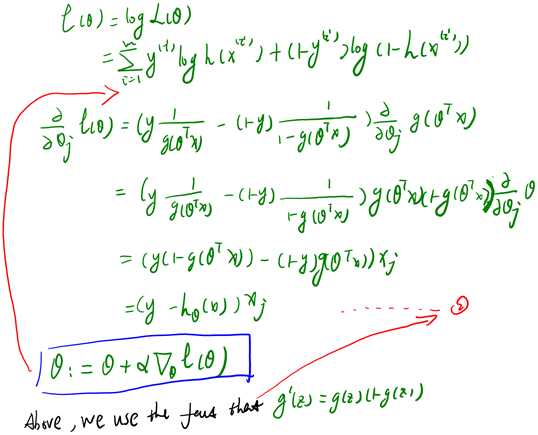 ℓ(θ) = log L(θ)
= Σ_{i=1}^{m} y^{(i)} log h(x^{(i)}) + (1-y^{(i)}) log (1-h(x^{(i)}))
∂/∂θ_j ℓ(θ) = (y 1/g(θ^T x) - (1-y) 1/(1-g(θ^T x))) ∂/∂θ_j g(θ^T x)
= (y 1/g(θ^T x) - (1-y) 1/(1-g(θ^T x))) g(θ^T x)(1-g(θ^T x)) ∂/∂θ_j θ
= (y(1-g(θ^T x)) - (1-y)g(θ^T x)) x_j
= (y - h_θ(x)) x_j ........ ②
θ := θ + α ∇_θ ℓ(θ)
Above, we use the that g'(z) = g(z)(1-g(z))